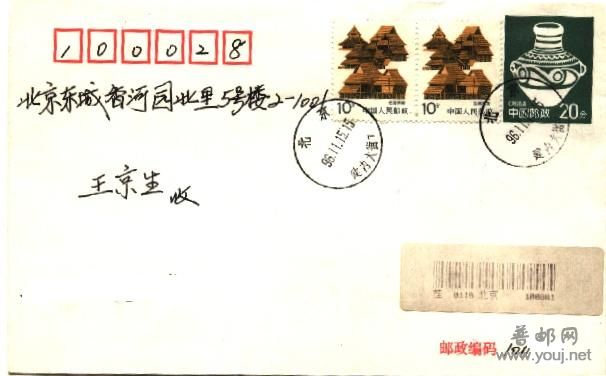 100028
北京东城香河园北里5号楼2-1001
王京生 收
10分
中国人民邮政
10分
中国人民邮政
中国邮政 20分
北京
96.11.15.15
建内大街
北
96.11.15.15
建内大街
0116 北京
邮政编码
普邮网
www.youj.net